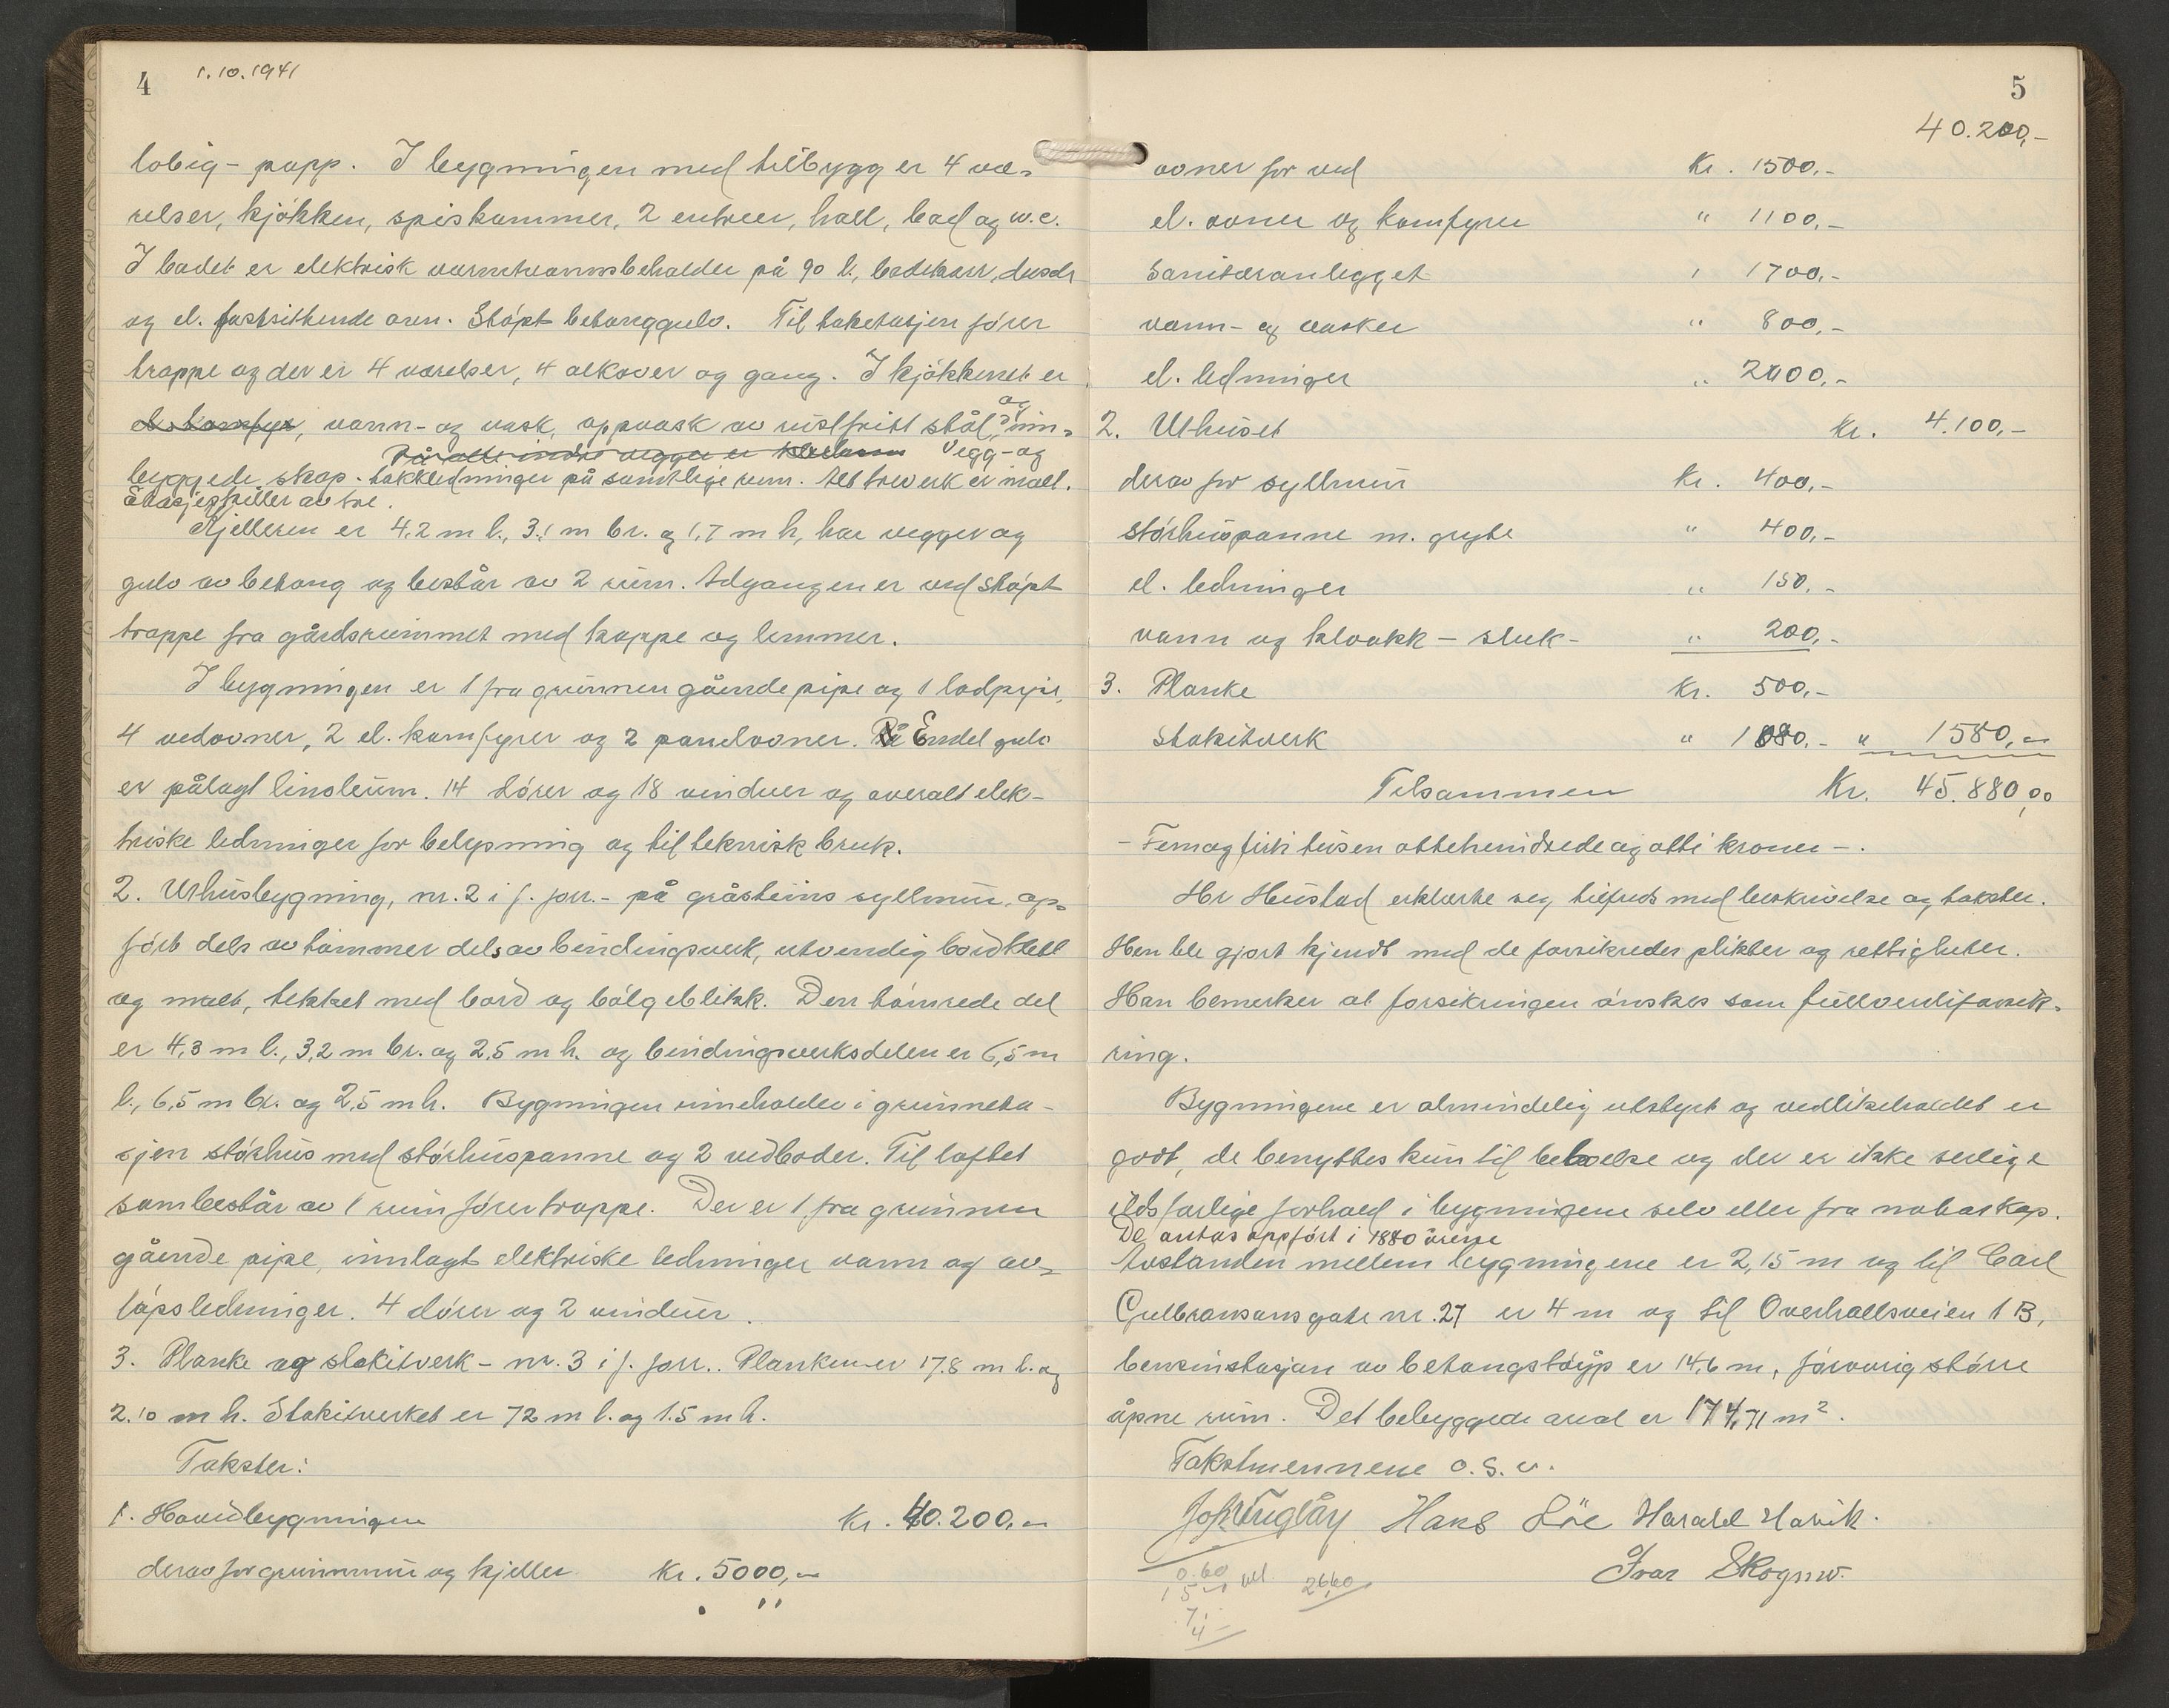 4 1.10.1941
lobig-papp. I bygningen med tilbygg er 4 væ-
relser, kjökken, spiskammer, 2 entreer, hall, bad og w.c.
I badet er elektrisk varmtvannsbeholder på 90 l., badekarr, dusch
og el. fastsittende ovn. Støpt betonggulv. Til taketasjen fører
trappe og der er 4 værelser, 4 alkover og gang. I kjökkenet er
el. komfyr, vann- og vask, oppvask av rustfritt stål, og inn-
På alle indre vegger er Vegg- og
byggede skap. takkledninger på samtlige rum. Alt treverk er malt.
Etasjeskiller av tre.
Kjelleren er 4,2 m l., 3.1 m br. og 1,7 m h, har vegger og
gulv av betong og består av 2 rum. Adgangen er ved støpt
trappe fra gårdsrummet med kappe og lemmer.
I bygningen er 1 fra grunnen gående pipe og 1 lodpipe,
4 vedovner, 2 el. komfyrer og 2 panelovner. Endel gulv
er pålagt linoleum. 14 dører og 18 vinduer og overalt elek-
triske ledninger for belysning og til teknisk bruk.
2. Uthusbygning, nr. 2 i f. forr.- på gråsteins syllmur, op-
ført dels av tømmer dels av bindingsverk, utvendig bordkledt
og malt, tekket med bord og bølgeblikk. Den tømrede del
er 4,3 m l., 3,2 m br. og 2,5 m h. og bindingsverksdelen er 6,5 m
l., 6,5 m br. og 2,5 m h. Bygningen inneholder i grunneta-
sjen störhus med störhuspanne og 2 vedboder. Til loftet
som består av 1 rum fører trappe. Der er 1 fra grunnen
gående pipe, innlagt elektriske ledninger vann og av-
löpsledninger. 4 dører og 2 vinduer.
3. Planke og stakitverk - nr. 3 i f. forr.. Planken er 17.8 m l. og
2.10 m h. Stakitverket er 72 m l. og 1.5 m h.
Takster:
1. Hovedbygningen kr. 40.200,-
derav for grunnmur og kjeller kr. 5000,-
5
40.200,-
ovner for ved Kr. 1500,-
el. ovner og komfyrer " 1100,-
Sanitæranlegget " 1700,-
vann- og vasker " 800,-
el. ledninger " 2000,-
2. Uthuset kr. 4.100,-
derav for syllmur kr. 400,-
störhuspanne m. gryte " 400,-
el. ledninger " 150,-
vann og kloakk - sluk- " 200,-
3. Planke kr. 500,-
Stakitverk " 1080,- " 1580,-
Tilsammen Kr. 45.880,00
- Femogfirti tusen åttehundredeogåtti kroner -.
Hr Hustad erklærte seg tilfreds med beskrivelse og takster.
Han ble gjort kjendt med de forsikredes plikter og rettigheter.
Han bemerker at forsikringen ønskes som fullverdiforsik-
ring.
Bygningene er almindelig utstyrt og vedlikeholdet er
godt, de benyttes kun til beboelse og der er ikke serlige
ildsfarlige forhold i bygningene selv eller fra naboskap.
De antas oppfört i 1880 årene
Avstanden mellem bygningene er 2,15 m og til Carl
Gulbransonsgate nr. 27 er 4 m og til Overhallsveien 1 B,
bensinstasjon av betongstøyp er 14,6 m, forøvrig større
åpne rum. Det bebyggede areal er 174,71 m².
Takstmennene o.s.v.
Hans Löe Harald Havik.
Ivar Skogmo.
0.60
15 - 26,60
7,-
4